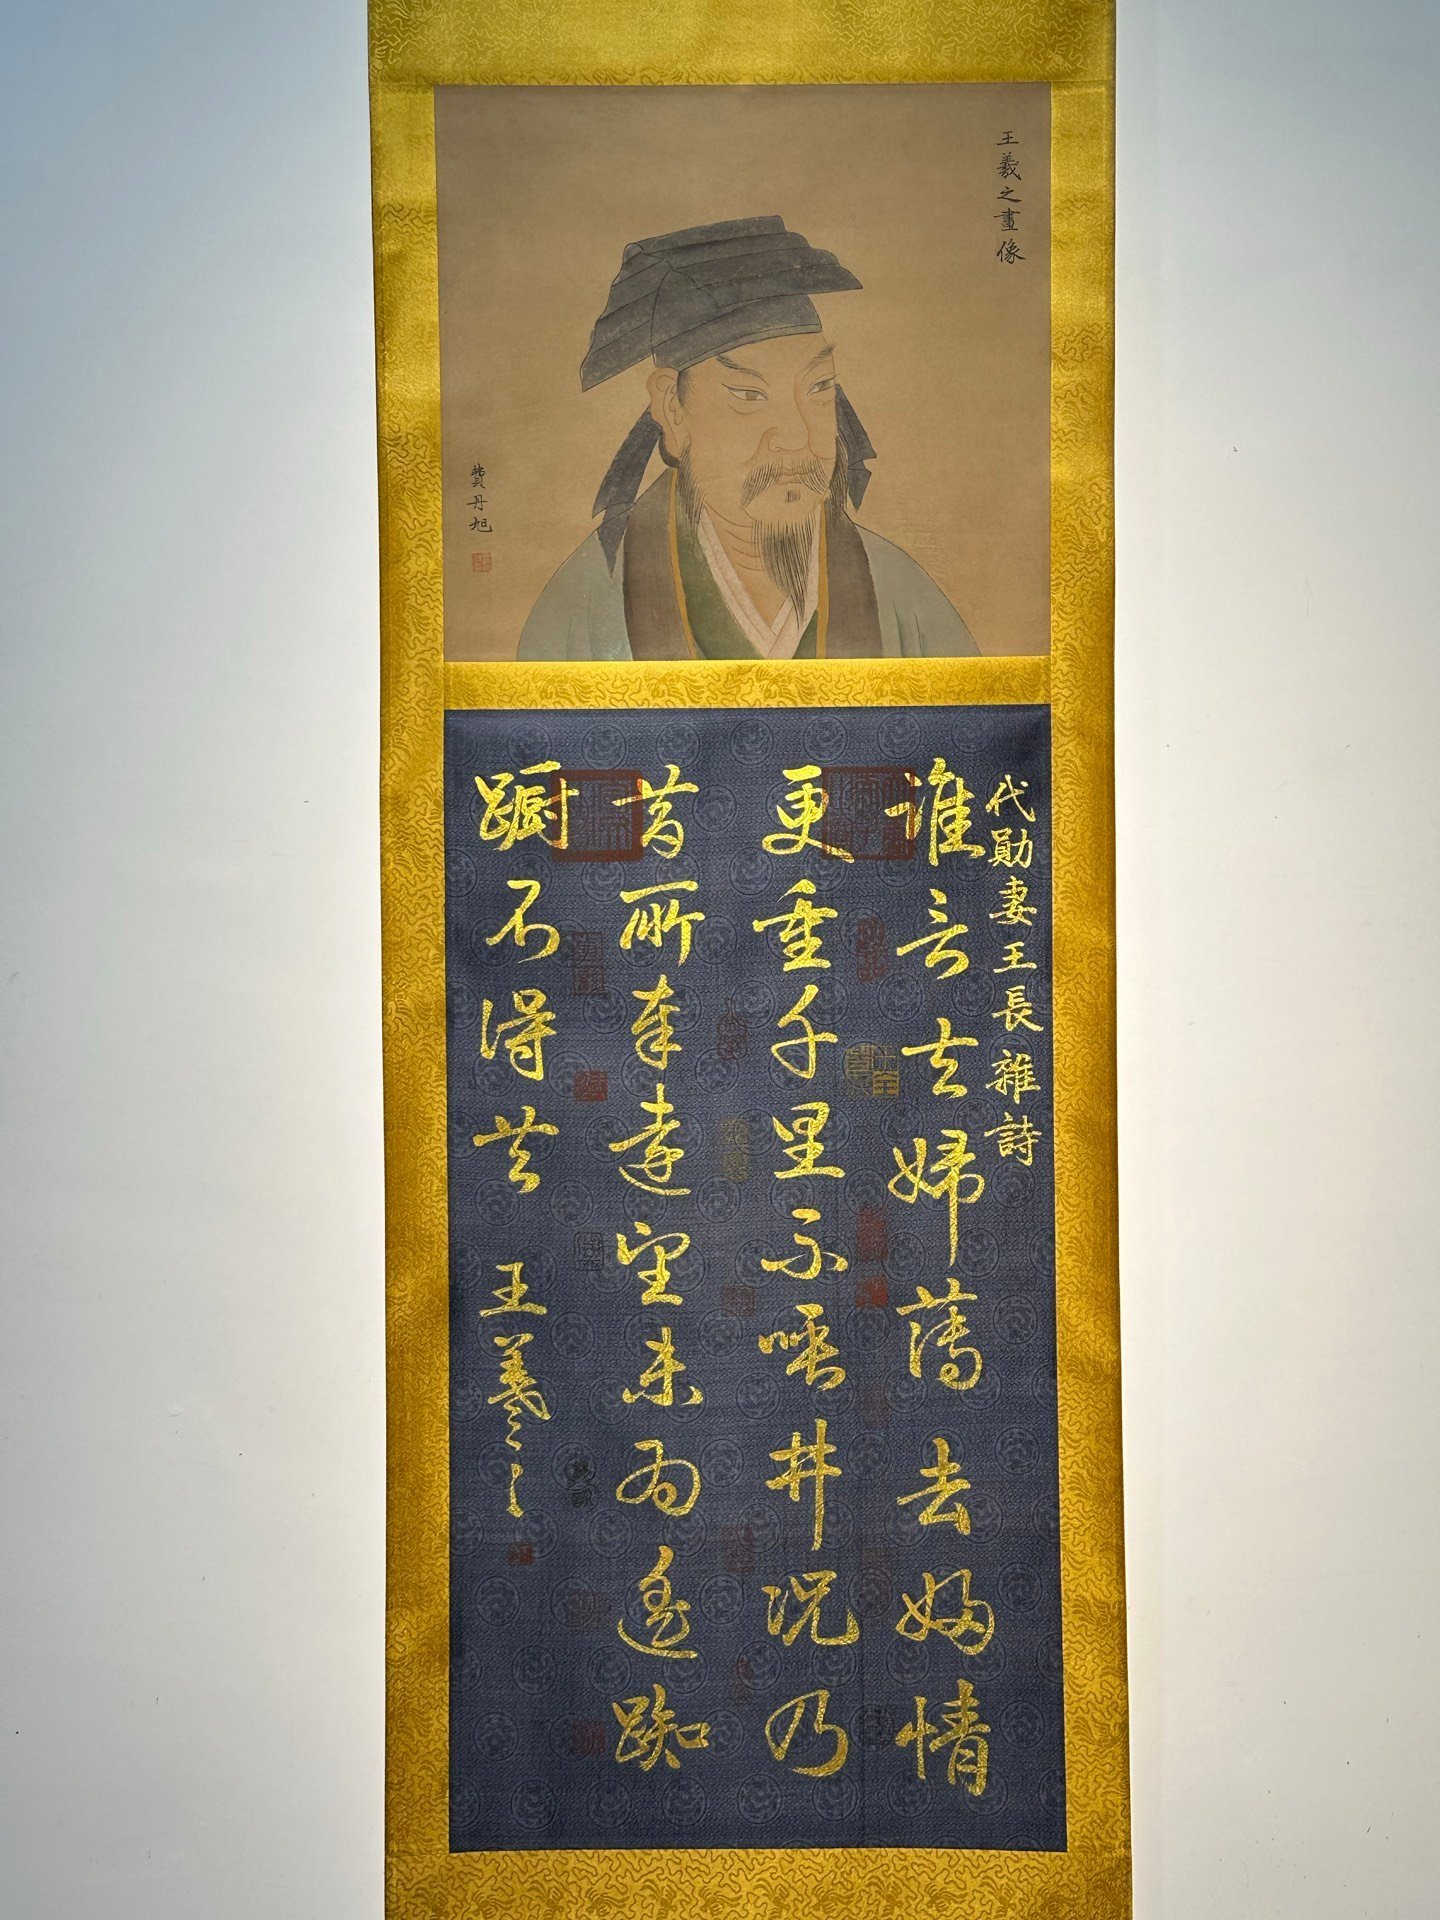 王羲之畫像
費丹旭
代勛妻王長 雜詩
誰言去婦薄去婦情
更重千里不唾井況乃
昔所奉遠望未為遙踟
蹰不得共 王羲之